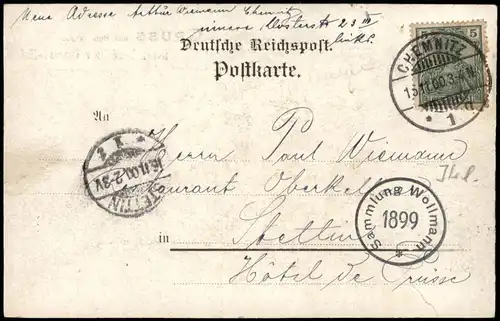 Neue Adresse Arthur Wiemann Chemnitz
innere Klosterstr 23 III
links.
Deutsche Reichspost.
Postkarte.
5 5
CHEMNITZ
13.11.00.3-4N.
* 1
An
Herrn Paul Wiemann
Restaurant Oberkellner
in Stettin
Hôtel de Prusse
STETTIN
16.11.00.2-3V
* 1
Sammlung Wollmann
1899
*